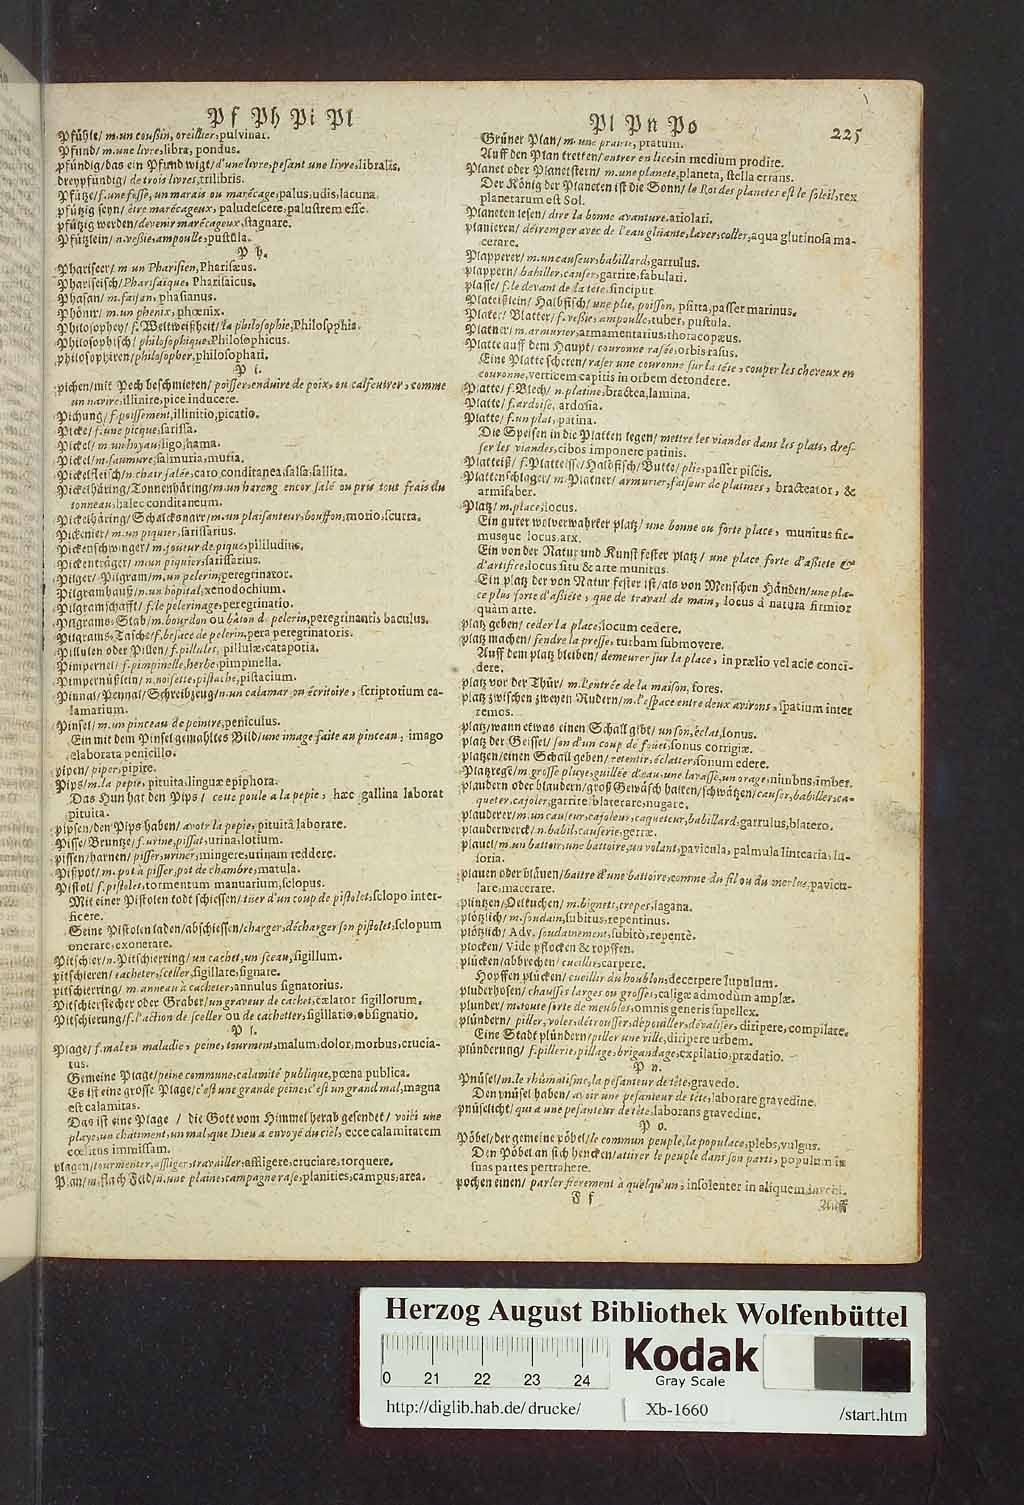 Pf Ph Pi Pl
Pfühle/ m. un coußin, oreillier, pulvinar.
Pfund/ m. une livre, libra, pondus.
pfündig/ das ein Pfund wigt/ d'une livre, pesant une livre, libralis.
dreypfündig/ de trois livres, trilibris.
Pfütze/ f. une fosse, un marais ou marécage, palus, udis, lacuna.
pfützig seyn/ être marécageux, paludescere, palustrem esse.
pfützig werden/ devenir marécageux, stagnare.
Pfützlein/ n. veßie, ampoulle, pustula.
P h.
Phariseer/ m. un Pharisien, Pharisæus.
Phariseisch/ Pharisaique, Pharisaicus.
Phasan/ m. faisan, phasianus.
Phönix/ m. un phenix, phœnix.
Philosophey/ f. Weltweißheit/ la philosophie, Philosophia.
Philosophisch/ philosophique, Philosophicus.
philosophiren/ philosopher, philosophari.
P i.
pichen/ mit Pech beschmieren/ poisser, enduire de poix, ou calfeutrer, comme
un navire, illinire, pice inducere.
Pichung/ f. poissement, illinitio, picatio.
Picke/ f. une picque, sarissa.
Pickel/ m. un hoyau, ligo, hama.
Pickel/ m. saumure, salmuria, muria.
Pickelfleisch/ n. chair salée, caro conditanea, salsa, sallita.
Pickelhäring/ Tonnenhäring/ m. un hareng encor salé ou pris tout frais du
tonneau, halec conditaneum.
Pickelhäring/ Schalcksnarr/ m. un plaisanteur, bouffon, morio, scurra.
Pickenier/ m. un piquier, sarissarius.
Pickenschwinger/ m. joüeur de pique, pililudius.
Pickenträger/ m. un piquier, sarissarius.
Pilger/ Pilgram/ m. un pelerin, peregrinator.
Pilgramhauß/ n. un hôpital, xenodochium.
Pilgramschafft/ f. le pelerinage, peregrinatio.
Pilgrams-Stab/ m. bourdon ou bâton de pelerin, peregrinantis baculus.
Pilgrams-Tasche/ f. besace de pelerin, pera peregrinatoris.
Pillulen oder Pillen/ f. pillules, pillulæ, catapotia.
Pimpernel/ f. pimpinelle, herbe, pimpinella.
Pimpernüßlein/ n. noisette, pistache, pistacium.
Pinnal/ Pennal/ Schreibzeug/ n. un calamar ou écritoire, scriptorium ca-
lamarium.
Pinsel/ m. un pinceau de peintre, peniculus.
Ein mit dem Pinsel gemahltes Bild/ une image faite au pinceau, imago
elaborata penicillo.
pipen/ piper, pipire.
Pips/ m. la pepie, pituita, linguæ epiphora.
Das Hun hat den Pips/ cette poule a la pepie, hæc gallina laborat
pituita.
pipsen/ den Pips haben/ avoir la pepie, pituitâ laborare.
Pisse/ Bruntze/ f. urine, pissat, urina, lotium.
pissen/ harnen/ pisser, uriner, mingere, urinam reddere.
Pißpot/ m. pot à pisser, pot de chambre, matula.
Pistol/ f. pistolet, tormentum manuarium, sclopus.
Mit einer Pistolen todt schiessen/ tüer d'un coup de pistolet, sclopo inter-
ficere.
Seine Pistolen laden/ abschiessen/ charger, décharger son pistolet, sclopum
onerare, exonerare.
Pitschier/ n. Pitschierring/ un cachet, un sceau, sigillum.
pitschieren/ cacheter, sceller, sigillare, signare.
pitschierring/ m. anneau à cacheter, annulus signatorius.
Pitschierstecher oder Graber/ un graveur de cachet, cælator sigillorum.
Pitschierung/ f. l'action de sceller ou de cachetter, sigillatio, obsignatio.
P l.
Plage/ f. mal en maladie, peine, tourment, malum, dolor, morbus, crucia-
tus.
Gemeine Plage/ peine commune, calamité publique, pœna publica.
Es ist eine grosse Plage/ c'est une grande peine, c'est un grand mal, magna
est calamitas.
Das ist eine Plage / die Gott vom Himmel herab gesendet/ voici une
playe, un châtiment, un mal, que Dieu a envoyé du ciel, ecce calamitatem
cœlitus immissam.
plagen/ tourmenter, affliger, travailler, affligere, cruciare, torquere.
Plan/ m. flach Feld/ n. une plaine, campagne rase, planities, campus, area.
Pl Pn Po
225
Grüner Plan/ m. une prairie, pratum.
Auff den Plan tretten/ entrer en lice, in medium prodire.
Planet oder Planetstern/ m. une planete, planeta, stella errans.
Der König der Planeten ist die Sonn/ le Roi des planetes est le soleil, rex
planetarum est Sol.
Planeten lesen/ dire la bonne avanture, ariolari.
planieren/ détremper avec de l'eau gluante, laver, coller, aqua glutinosa ma-
cerare.
Plapperer/ m. un causeur, babillard, garrulus.
plappern/ babiller, causer, garrire, fabulari.
plasse/ f. le devant de la tête, sinciput.
Plateißlein/ Halbfisch/ une plie, poisson, psitta, passer marinus.
Plater/ Blatter/ f. veßie, ampoulle, tuber, pustula.
Platner/ m. armurier, armamentarius, thoracopæus.
Platte auff dem Haupt/ couronne rasée, orbis rasus.
Eine Platte scheren/ raser une couronne sur la tête, couper les cheveux en
couronne, verticem capitis in orbem detondere.
Platte/ f. Blech/ n. platine, bractea, lamina.
Platte/ f. ardoise, ardosia.
Platte/ f. un plat, patina.
Die Speisen in die Platten legen/ mettre les viandes dans les plats, dres-
ser les viandes, cibos imponere patinis.
Platteiß/ f. Platteisse/ Halbfisch/ Butte/ plie, passer piscis.
Plattenschlager/ m. Platner/ armurier, faiseur de platines, bracteator, &
armifaber.
Platz/ m. place, locus.
Ein guter wolverwahrter platz/ une bonne ou forte place, munitus fir-
musque locus, arx.
Ein von der Natur und Kunst fester platz/ une place forte d'aßiete &
d'artifice, locus situ & arte munitus.
Ein platz der von Natur fester ist/ als von Menschen Händen/ une pla-
ce plus forte d'aßiéte, que de travail de main, locus à natura firmior
quàm arte.
platz geben/ ceder la place, locum cedere.
platz machen/ fendre la presse, turbam submovere.
Auff dem platz bleiben/ demeurer sur la place, in prælio vel acie conci-
dere.
platz vor der Thür/ m. l'entrée de la maison, fores.
platz zwischen zweyen Rudern/ m. l'espace entre deux avirons, spatium inter
remos.
platz/ wann etwas einen Schall gibt/ un son, éclat, sonus.
platz der Geissel/ son d'un coup de foüet, sonus corrigiæ.
platzen/ einen Schall geben/ retentir, éclatter, sonum edere.
Platzrege/ m. grosse pluye, guillée d'eau, une lavasse, un orage, nimbus, imber.
plaudern oder blaudern/ groß Gewäsch halten/ schwätzen/ causer, babiller, ca-
queter, cajoler, garrire, blaterare, nugare.
plauderer/ m. un causeur, cajoleur, caqueteur, babillard, garrulus, blatero.
plauderwerck/ n. babil, causerie, gerræ.
plauel/ m. un battoir, une battoire, un volant, pavicula, palmula lintearia, lu-
soria.
plauen oder bläuen/ battre d'une battoire, comme du fil ou du merlus, pavicu-
lare, macerare.
plintzen/ Oelkuchen/ m. bignets, crepes, lagana.
plötzlich/ m. soudain, subitus, repentinus.
plötzlich/ Adv. soudainement, subitò, repentè.
plocken/ Vide pflocken & ropffen.
plücken/ abbrechen/ cueillir, carpere.
Hopffen plücken/ cueillir du houblon, decerpere lupulum.
pluderhosen/ chausses larges ou grosses, caligæ admodùm amplæ.
plunder/ m. toute sorte de meubles, omnis generis supellex.
plündern/ piller, voler, détrousser, dépouiller, dévaliser, diripere, compilare.
Eine Stadt plündern/ piller une ville, diripere urbem.
plünderung/ f. pillerie, pillage, brigandage, expilatio, prædatio.
P n.
Pnüsel/ m. le rhûmatisme, la pesanteur de tête, gravedo.
Den pnüsel haben/ avoir une pesanteur de tête, laborare gravedine.
pnüselicht/ qui a une pesanteur de tête, laborans gravedine.
P o.
Pöbel/ der gemeine pöbel/ le commun peuple, la populace, plebs, vulgus.
Den Pöbel an sich hencken/ attirer le peuple dans son parti, populum in
suas partes pertrahere.
pochen einen/ parler fierement à quelqu'un, insolenter in aliquem invehi.
F f
Auff
Herzog August Bibliothek Wolfenbüttel
Kodak
Gray Scale
0 21 22 23 24
http://diglib.hab.de/drucke/
Xb-1660
/start.htm